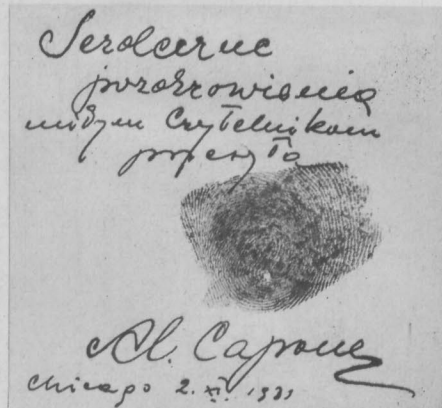 Serdeczne
pozdrowienia
miłym Czytelnikom
przesyła
Al. Capone
Chicago 2. XI. 1931